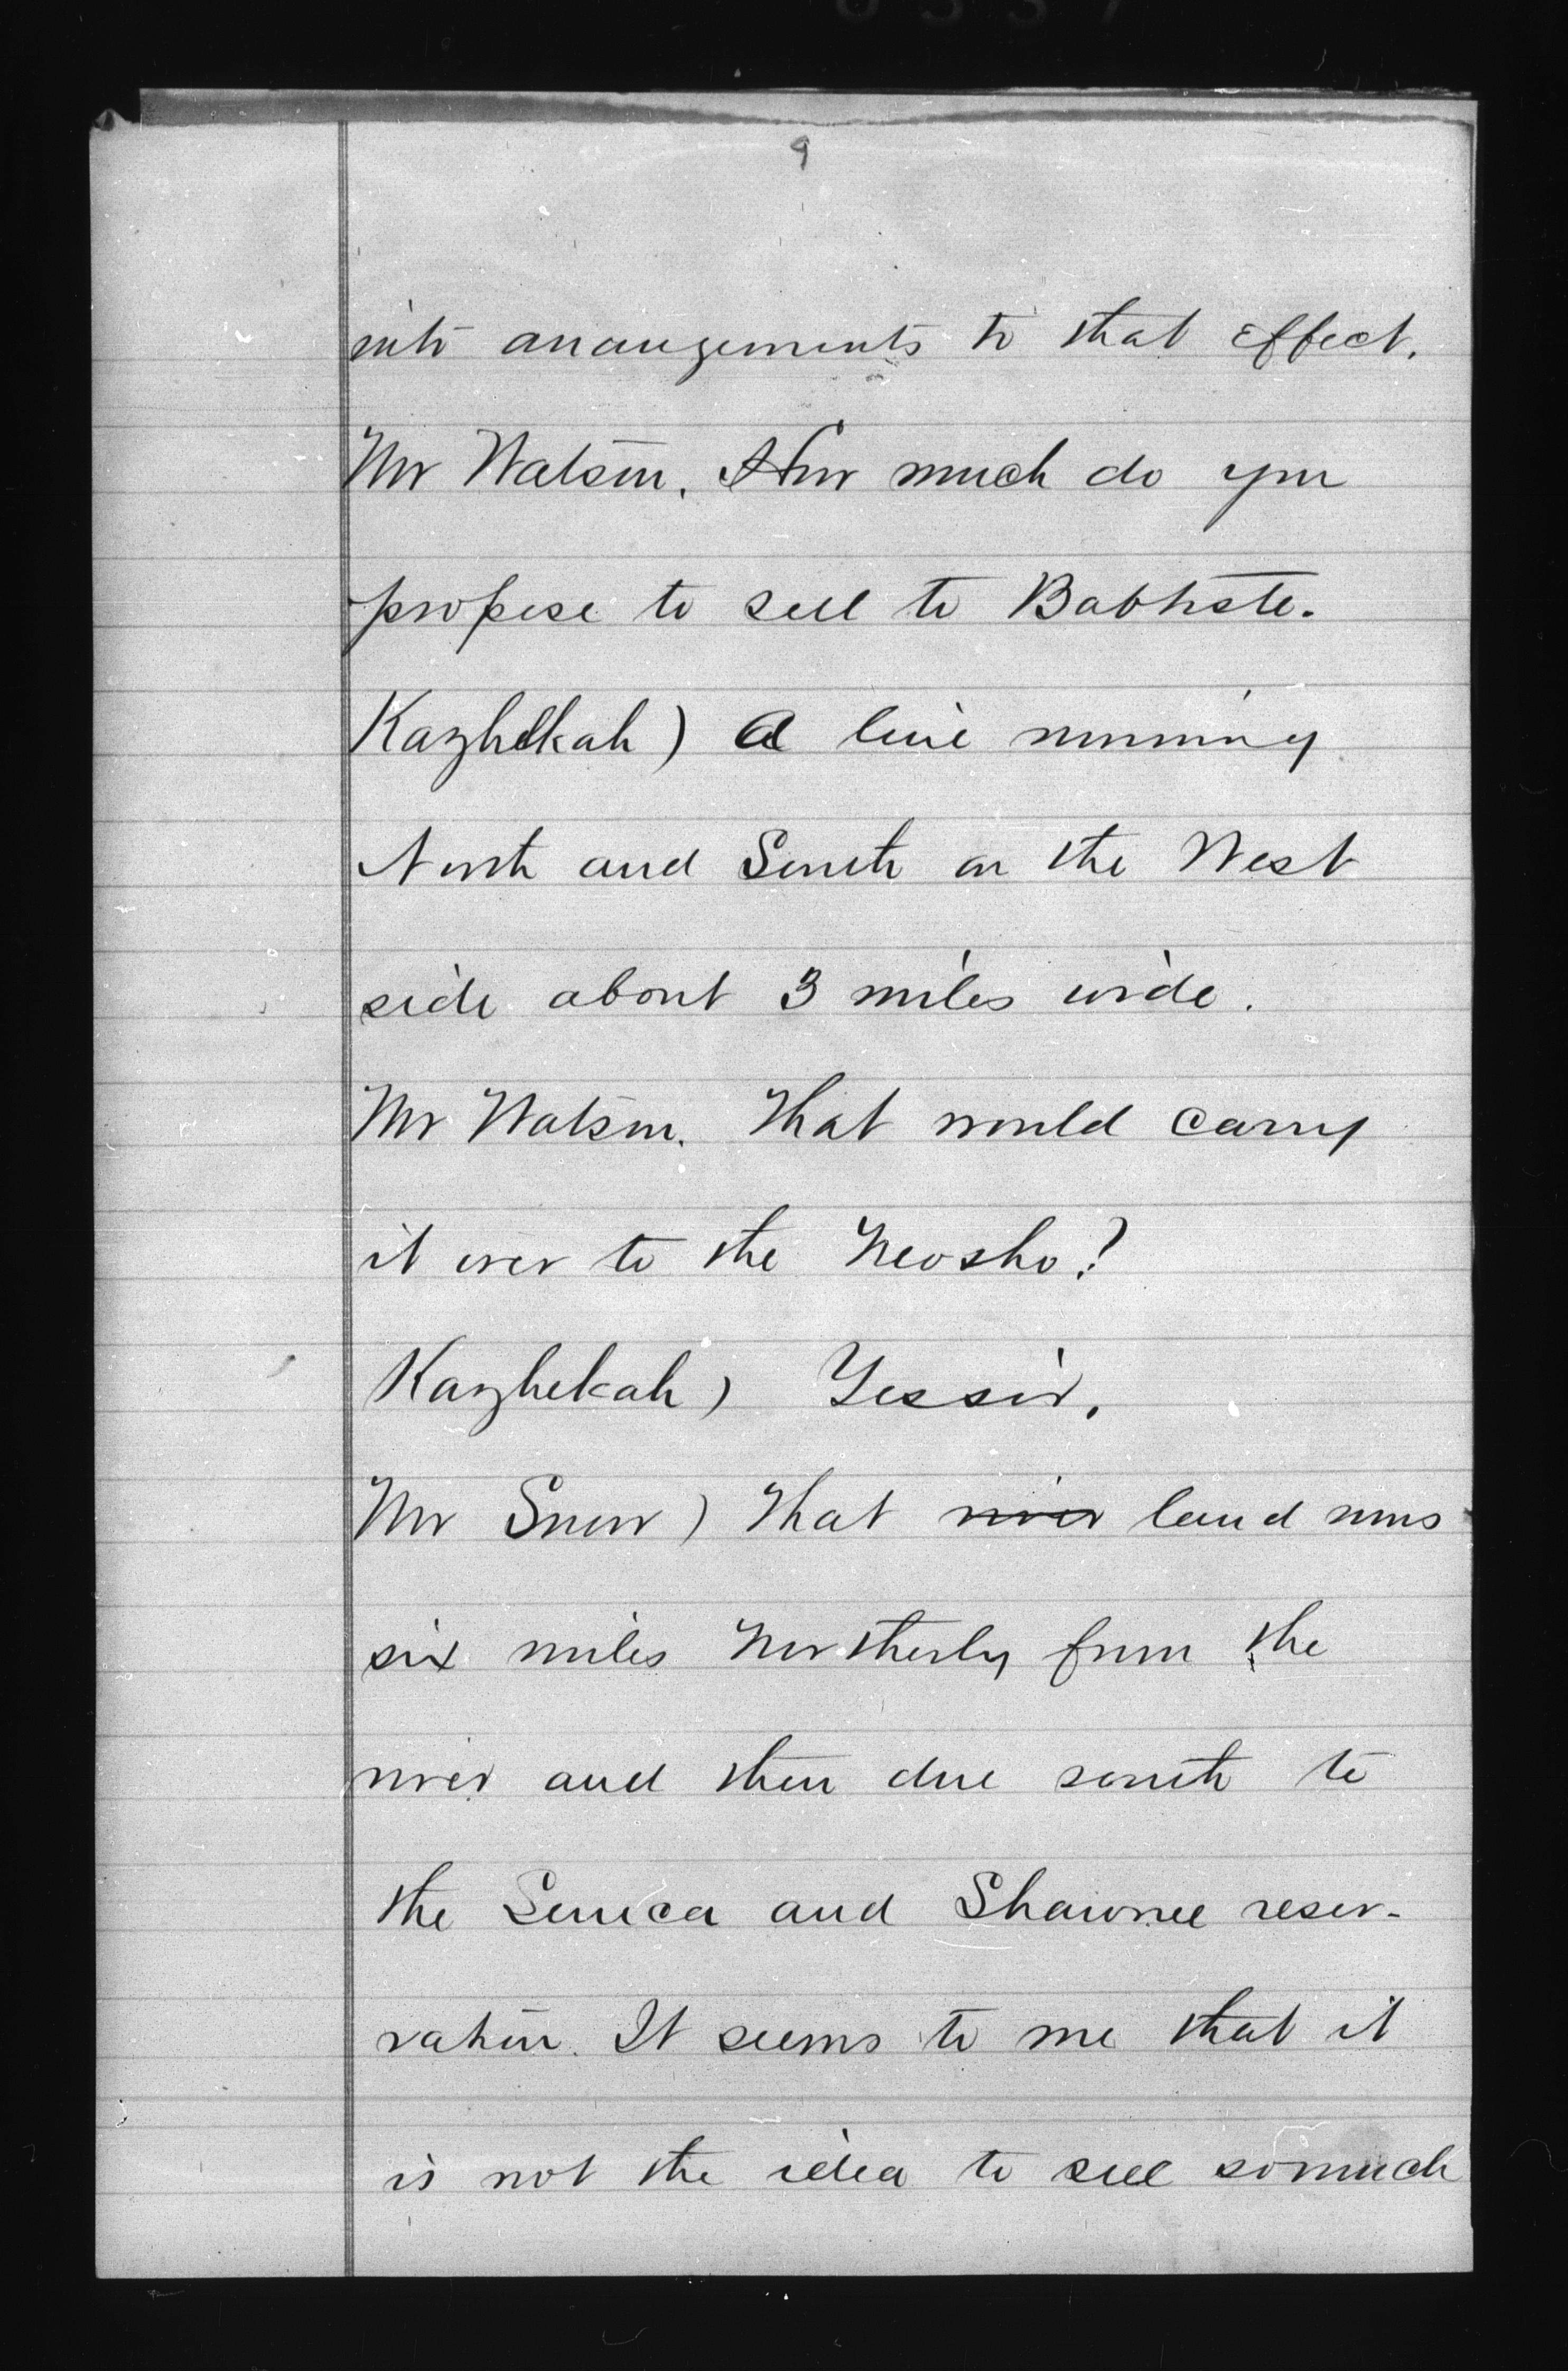 9
into arrangements to that effect.
Mr Watson. How much do you
propose to sell to Babtiste.
Kazhekah) A line running
North and South on the West
side about 3 miles wide.
Mr Watson. That would carry
it over to the Neosho?
Kazhekah) Yessir.
Mr Snow) That river land runs
six miles Northerly from the
river and then due south to
the Seneca and Shawnee reser-
vation. It seems to me that it
is not the idea to sell somuch